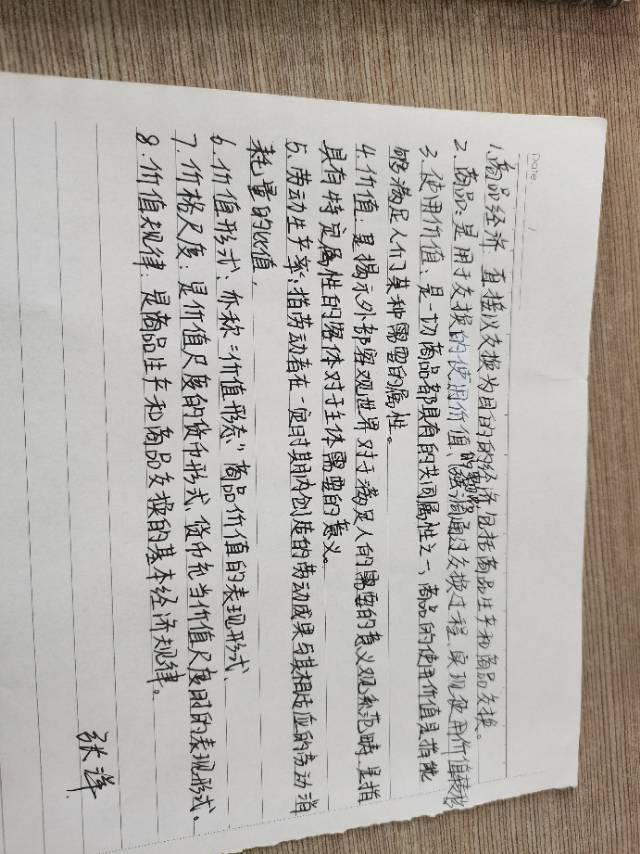 Date
1.商品经济 直接以交换为目的的经济,包括商品生产和商品交换。
2.商品:是用于交换的使用价值,强调通过交换过程、实现使用价值转移
的商品
3.使用价值、是一切商品都具有的共同属性之一、商品的使用价值是指能
够满足人们某种需要的属性。
4.价值、是揭示外部客观世界对于满足人的需要的意义观系范畴、是指
具有特定属性的客体对于主体需要的意义。
5、劳动生产率:指劳动者在一定时期内创造的劳动成果与其相适应的劳动消
耗量的比值.
6.价值形式、亦称:"价值形态"商品价值的表现形式、
7.价格尺度:是价值尺度的货币形式、货币充当价值尺度时的表现形式。
8.价值规律 是商品生产和商品交换的基本经济规律。
张洋